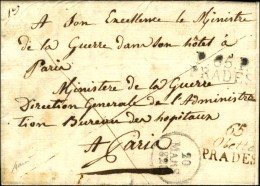 A Son Excellence le Ministre
de la Guerre dans son hôtel à
Paris
P 65 P
PRADES
Ministere de la Guerre
Direction Generale de l'Administra
tion Bureau des hopitaux
A Paris
20
MARS
65
PRADES